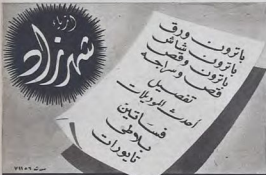 أزياء
شهرزاد
باترون ورق
باترون شاش
باترون وقص
قص وسراجه
تفصيل
أحدث الموديلات
فساتين
بلاطي
تايورات